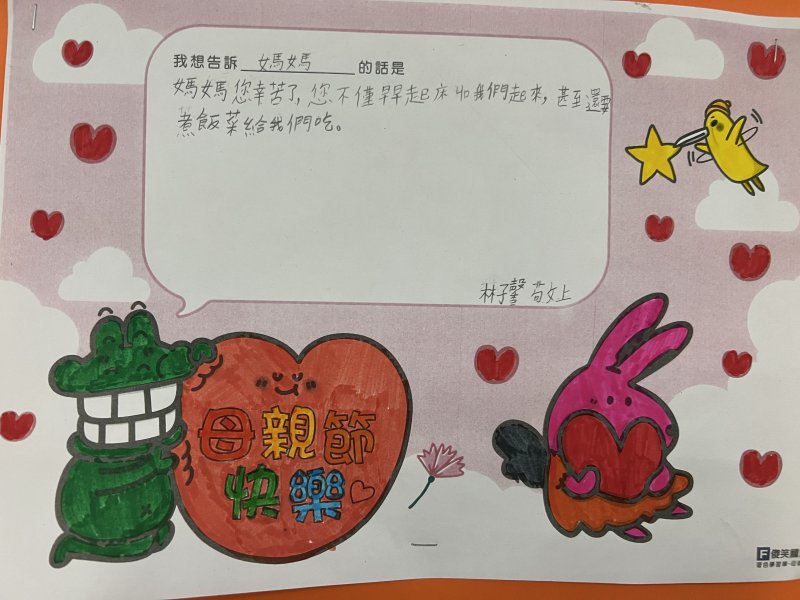 我想告訴 媽媽 的話是
媽媽您辛苦了,您不僅早起床叫我們起來,甚至還要
煮飯菜給我們吃。
林子馨 敬上
母親節
快樂
F 傻笑國